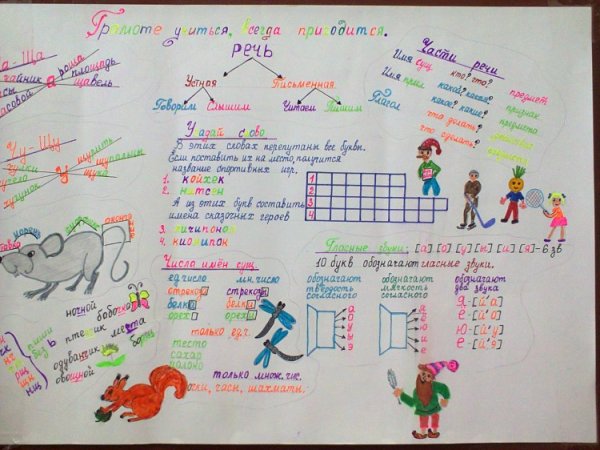 Грамоте учиться, всегда пригодится.
РЕЧЬ
Устная Письменная
Говорим Слышим Читаем Пишим
Части речи
Имя сущ. кто? что? предмет
Имя прил. какой? какая? признак
какое? какие? предмета
Глагол что делать?
что сделать?
а - Ща
чайник а роща
площадь
щавель
Чу - Щу
у шурить
щупальцы
щука
Угадай слово.
В этих словах перепутаны все буквы.
Если поставить их на место, получится
название спортивных игр.
1. койхек
2. нитсен
А из этих букв составить
имена сказочных героев
3. чичипоноя
4. кионипок
1
2
3
4
Число имён сущ.
ед. число мн. число
стрекоза стрекозы
белка белки
орех орехи
только ед.ч.
тесто
сахар
молоко
только множ. чис.
очки, часы, шахматы.
Гласные звуки: [а] [о] [у] [ы] [и] [э] - 6 зв
10 букв обозначают гласные звуки.
обозначают
твёрдость
согласного
а
о
у
ы
э
обозначают
мягкость
согласного
я
ё
ю
и
е
обозначают
два звука
Я - [й'а]
Ё - [й'о]
Ю - [й'у]
Е - [й'э]
корень
окончание
ночной бабочка
пиши
без ь птенчик мечта
одуванчик
овощной
чн
рщ
нщ